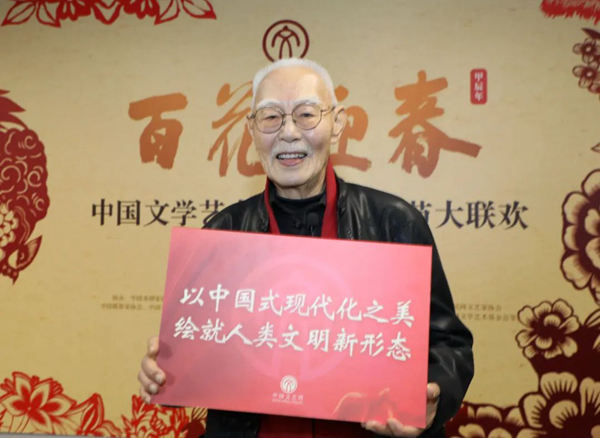 百花迎春
甲辰年
中国文学艺
节大联欢
以中国式现代化之美
绘就人类文明新形态
中国文艺网